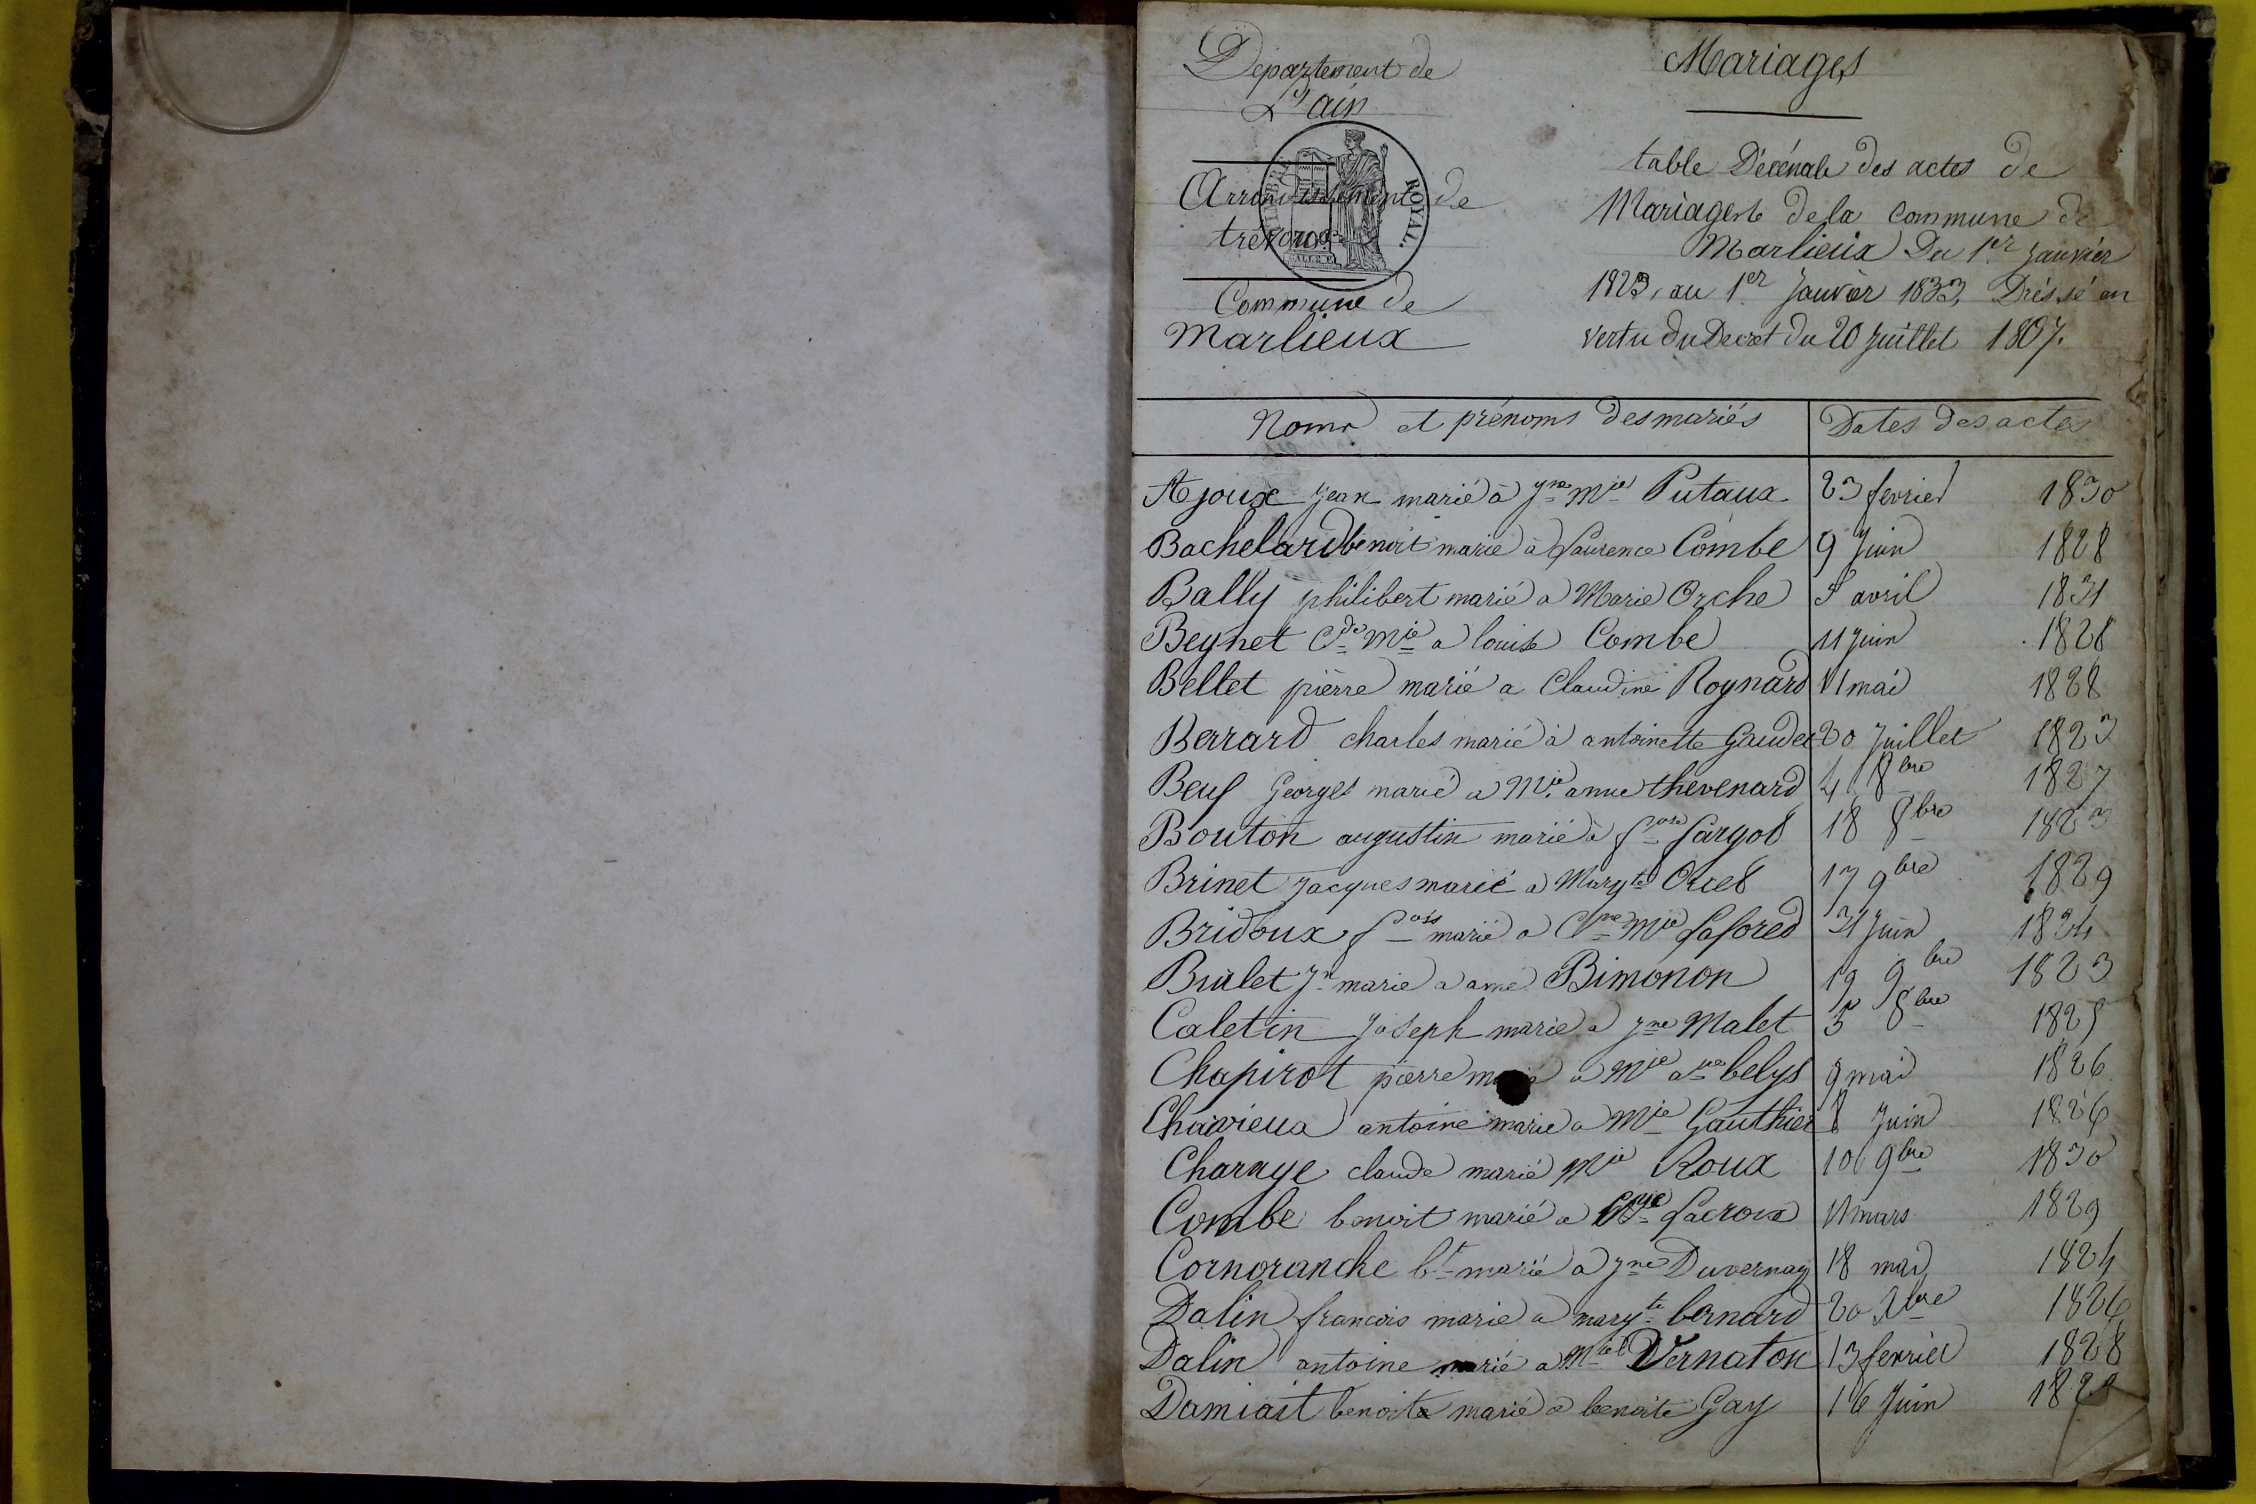 Département de
L'ain
Arrondissement de
trévoux
TIMBRE ROYAL.
Commune de
Marlieux
Mariages
table Décénale des actes de
Mariages de la commune de
Marlieux Du 1er Janvier
1823, au 1er Janvier 1833, Dréssé en
vertu du Decret du 20 Juillet 1807.
Noms et prénoms des mariés Dates des actes
Ajoux Jean marié à Jne Mie Putaux 23 fevrier 1830
Bachelard benoit marié à Laurence Combe 9 Juin 1828
Bally philibert marié a Marie Orche avril 1831
Beynet Cde Mié a louise Combe 11 Juin 1828
Bellet pièrre marié a Claudine Roynard 11 mai 1828
Berrard charles marié à antoinette Gaudet 20 Juillet 1823
Beuf Georges marié a Mie anne thevenard 4 8bre 1827
Bouton augustin marié à fsoise 18 8bre 1823
Brinet Jacques marié a Margte Orcel 17 9bre 1829
Bridoux fois marié a Cne Mie Lafored Juin 1824
Brulet Jn marié a ane Bimonon 19 9bre 1823
Caletin Joseph marié a Jne Malet 5 8bre 1825
Chapirot pierre marié a Mie ane belys 9 mai 1826
Chavrieux antoine marié a Mie Gauthier 8 Juin 1826
Charnye claude marié Mie Roux 10 9bre 1830
Combe benoit marié a Lacroix 11 mars 1829
Cornoranche bt marié a Jne Duvernay 18 mai 1824
Dalin francois marié a margte bernard 20 Xbre 1826
Dalin antoine marié a Vernaton 13 fevrier 1828
Damiait benoit marié a benoite Gay 16 Juin